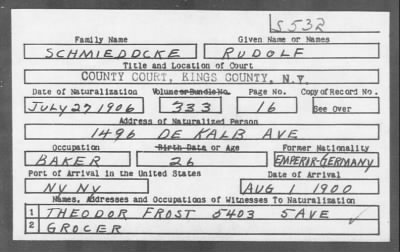 S532
Family Name Given Name or Names
SCHMIEDDCKE RUDOLF
Title and Location of Court
COUNTY COURT, KINGS COUNTY, N.Y.
Date of Naturalization Volume or Bundle No. Page No. Copy of Record No.
JULY 27 1906 333 16 See Over
Address of Naturalized Person
1496 DE KALB AVE
Occupation Birth Date or Age Former Nationality
BAKER 26 EMPERIR-GERMANY
Port of Arrival in the United States Date of Arrival
NY NY AUG 1 1900
Names, Addresses and Occupations of Witnesses To Naturalization
1 THEODOR FROST 5403 5 AVE
2 GROCER